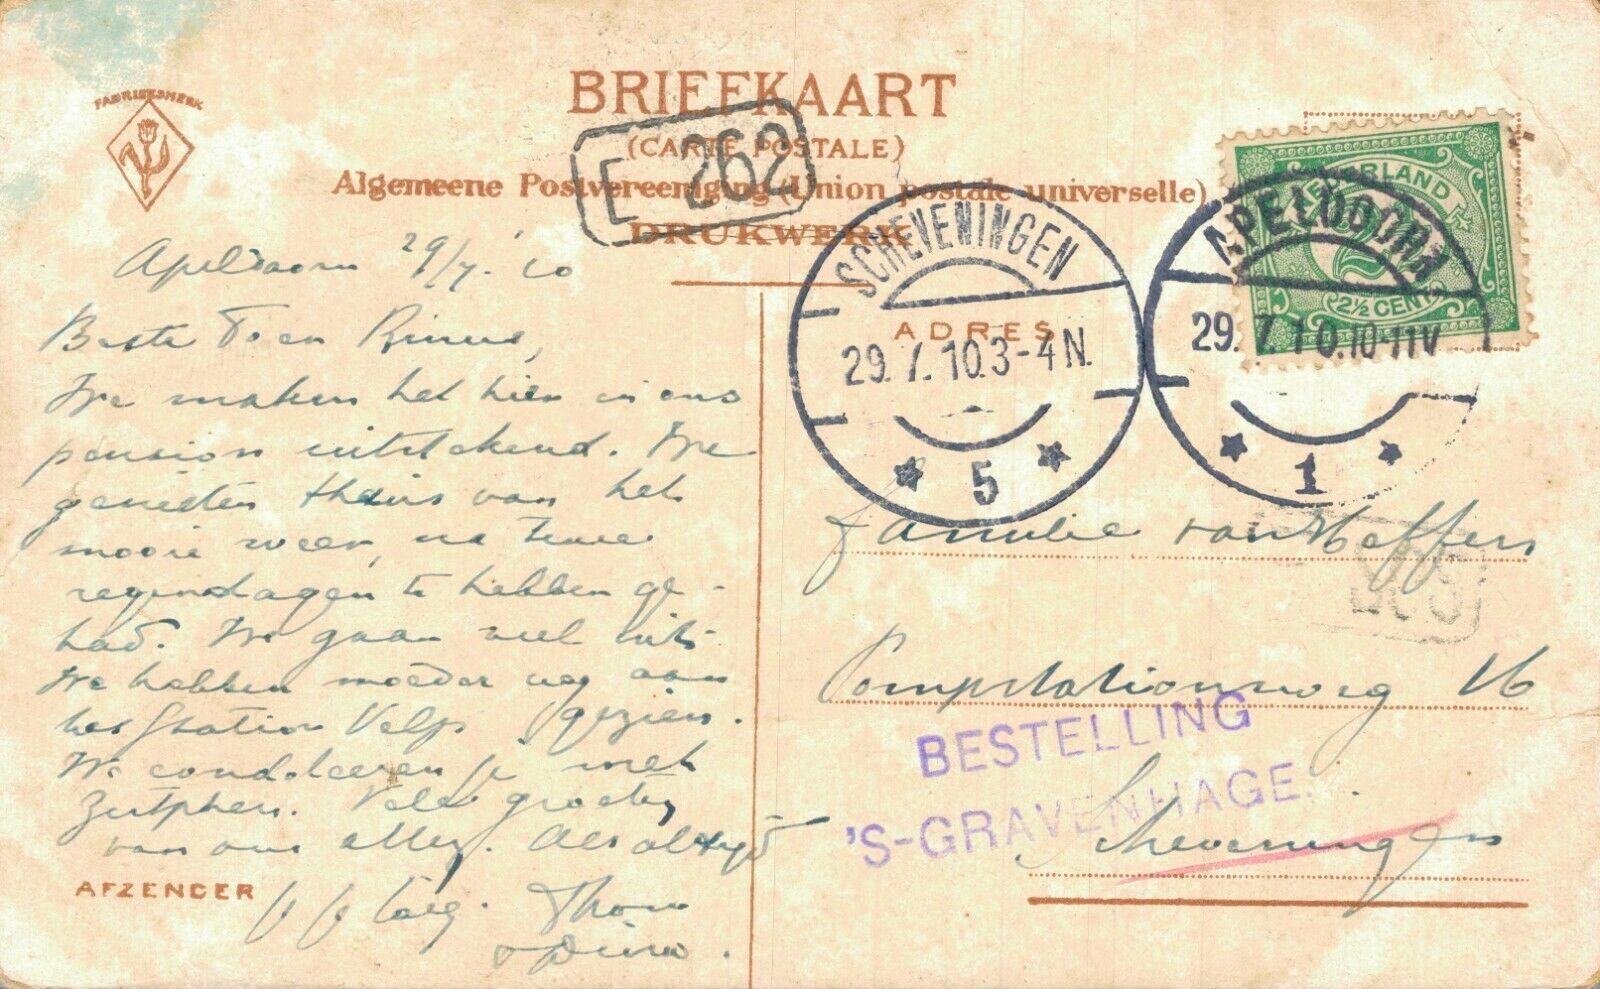 FABRIEKSMERK
BRIEFKAART
(CARTE POSTALE)
Algemeene Postvereeniging (Union postale universelle)
DRUKWERK
E 262
SCHEVENINGEN
29.7.10.3-4N.
5
APELDOORN
29.7.10.10-11V
1
NEDERLAND
2½
2½ CENT
ADRES
Apeldoorn 29/7.'10
Beste Toon Rinus,
We maken het hier in ons
pension uitstekend. We
genieten thans van het
mooie weer, na twee
regendagen te hebben ge-
had. We gaan veel uit.
We hebben moeder nog aan
het Station Velp gezien.
We condoleeren je met
Zutphen. Vele groeten
van ons allen. Als altyd
AFZENDER
Thom
Familie van
Pompstationsweg 16
BESTELLING
'S-GRAVENHAGE.
Scheveningen